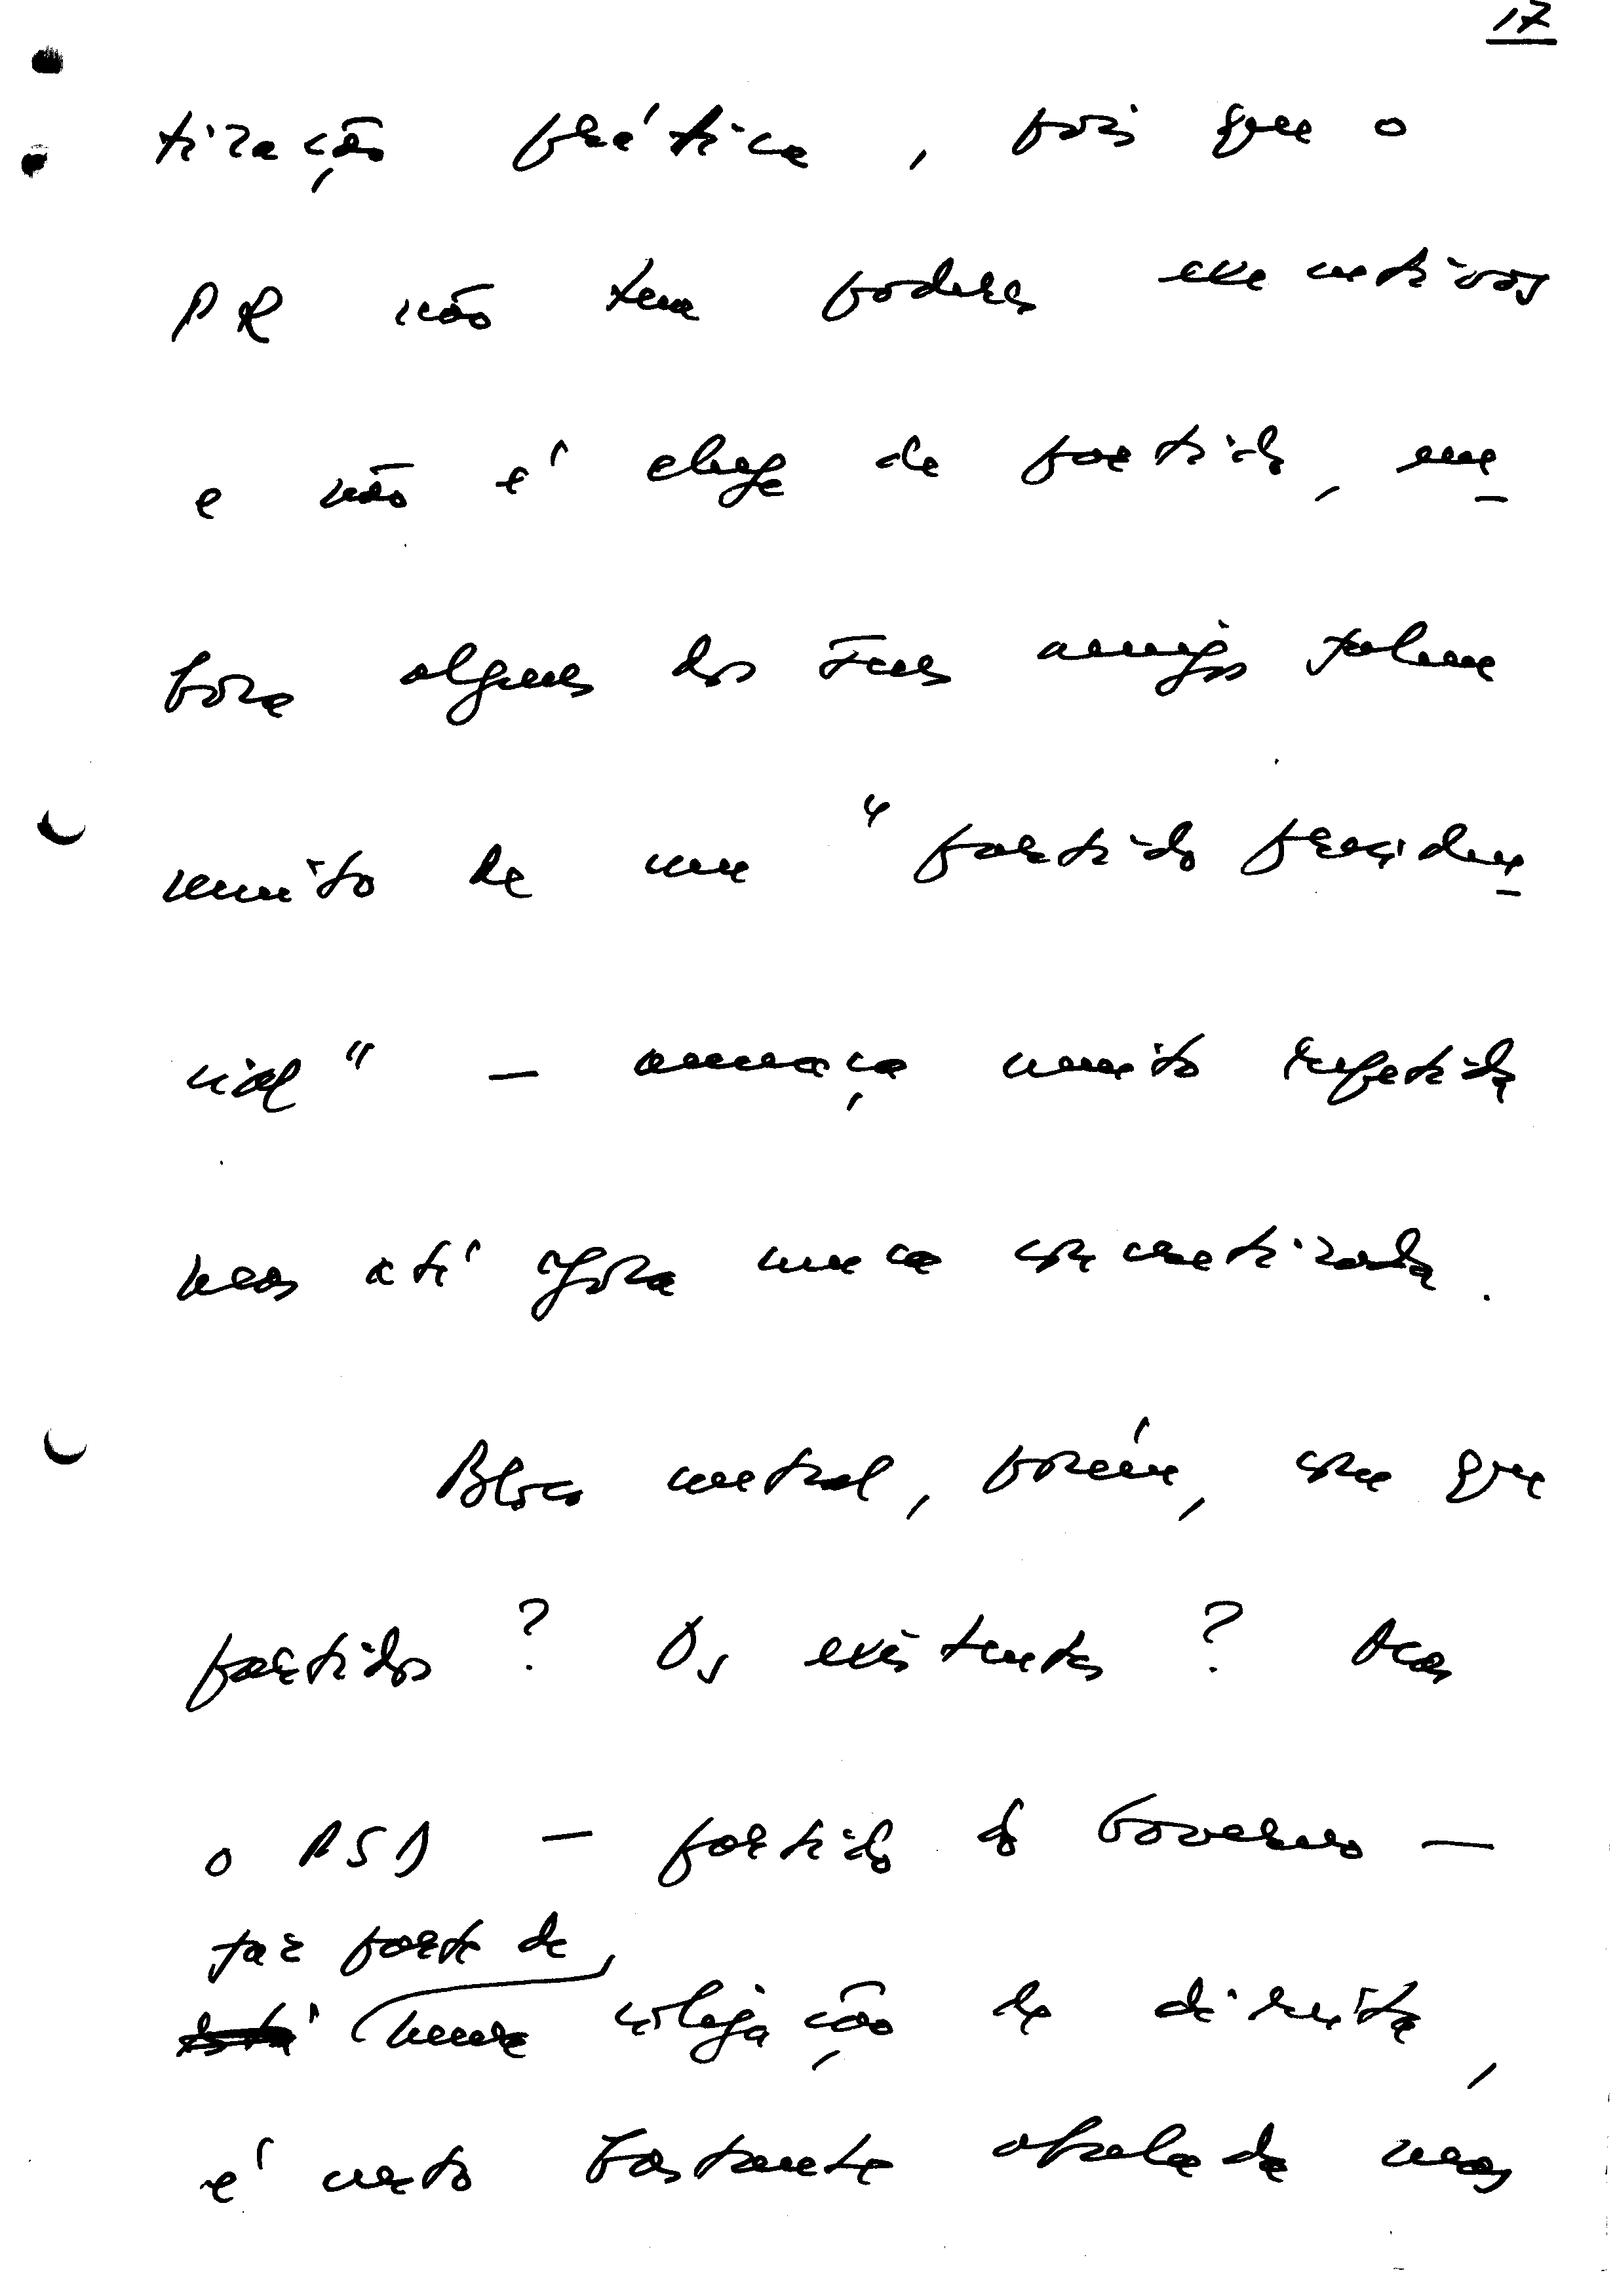 17
tização prática, pois que o
PR não tem poderes executivos
e não é chefe de partido, em-
bora alguns dos seus amigos falem
muito de um "partido presiden-
cial" — ameaça muito repetida
mas até agora nunca concretizada.
Bloco central, porém, com que
partidos? Os existentes? Mas
o PSD — partido do Governo —
faz parte de
uma coligação de direita,
é certo bastante abalada mas